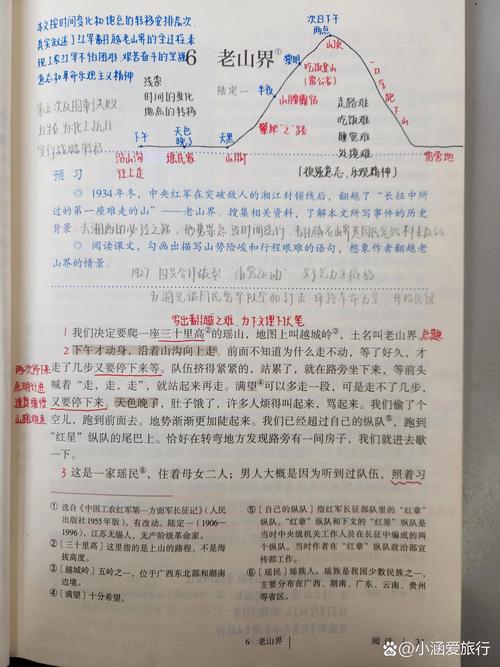 本文按时间变化和地点的转移安排层次,
真实叙述了红军翻越老山界的全过程,表
现了红军不怕困难,艰苦奋斗的坚强
意志和革命乐观主义精神
6 老山界①
陆定一
线索
时间的变化
地点的转移
下午
天色晚了
天黑
半夜
黎明
次日下午
两点
沿山沟
往上走
瑶民家
山脚
攀"之"路
山腰露宿
吃饭登山
(雷公岩)
山顶
一口气跑下山
宿营地
走路难
吃饭难
睡觉难
处境难
预习
◎ 1934年冬,中央红军在突破敌人的湘江封锁线后,翻越了“长征中所
过的第一座难走的山”——老山界。搜集相关资料,了解本文所写事件的历史
背景。
◎ 阅读课文,勾画出描写山势险峻和行程艰难的语句,想象作者翻越老
山界的情景。
写出翻越之难,为下文埋下伏笔
1 我们决定要爬一座三十里高②的瑶山,地图上叫越城岭③,土名叫老山界。 点题
2 下午才动身,沿着山沟向上走。前面不知道为什么走不动,等了好久,才
走了几步又要停下来等。队伍挤得紧紧的,站累了,就在路旁坐下来,等前头
喊着“走,走,走”,就站起来再走。满望④可以多走一段,可是走不了几步,
又要停下来。天色晚了,肚子饿了,许多人烦得叫起来,骂起来。我们偷了个
空儿,跑到前面去。地势渐渐更加陡起来。我们已经超过自己的纵队⑤,跑到
“红星”纵队的尾巴上。恰好在转弯地方发现路旁有一间房子,我们就进去歇
一下。
3 这是一家瑶民⑥,住着母女二人;男人大概是因为听到过队伍,照着习
① 选自《中国工农红军第一方面军长征记》(人民
出版社1955年版)。有改动。陆定一(1906—
1996),江苏无锡人,无产阶级革命家。
② [三十里高]这里指的是上山的路程,不是海
拔高度。
③ [越城岭]五岭之一,位于广西东北部和湖南
边境。
④ [满望]十分希望。
⑤ [自己的纵队]指红军长征部队里的“红章”
纵队。“红章”纵队和下文的“红星”纵队是
当时中央级机关工作人员在长征中编成的两
个纵队。当时作者在“红章”纵队政治部宣
传部工作。
⑥ [瑶民]瑶族人。瑶族是我国少数民族之一,
主要分布在广西、湖南、广东、云南、贵州
等省区。
6 老山界
阅读
31
@小涵爱旅行